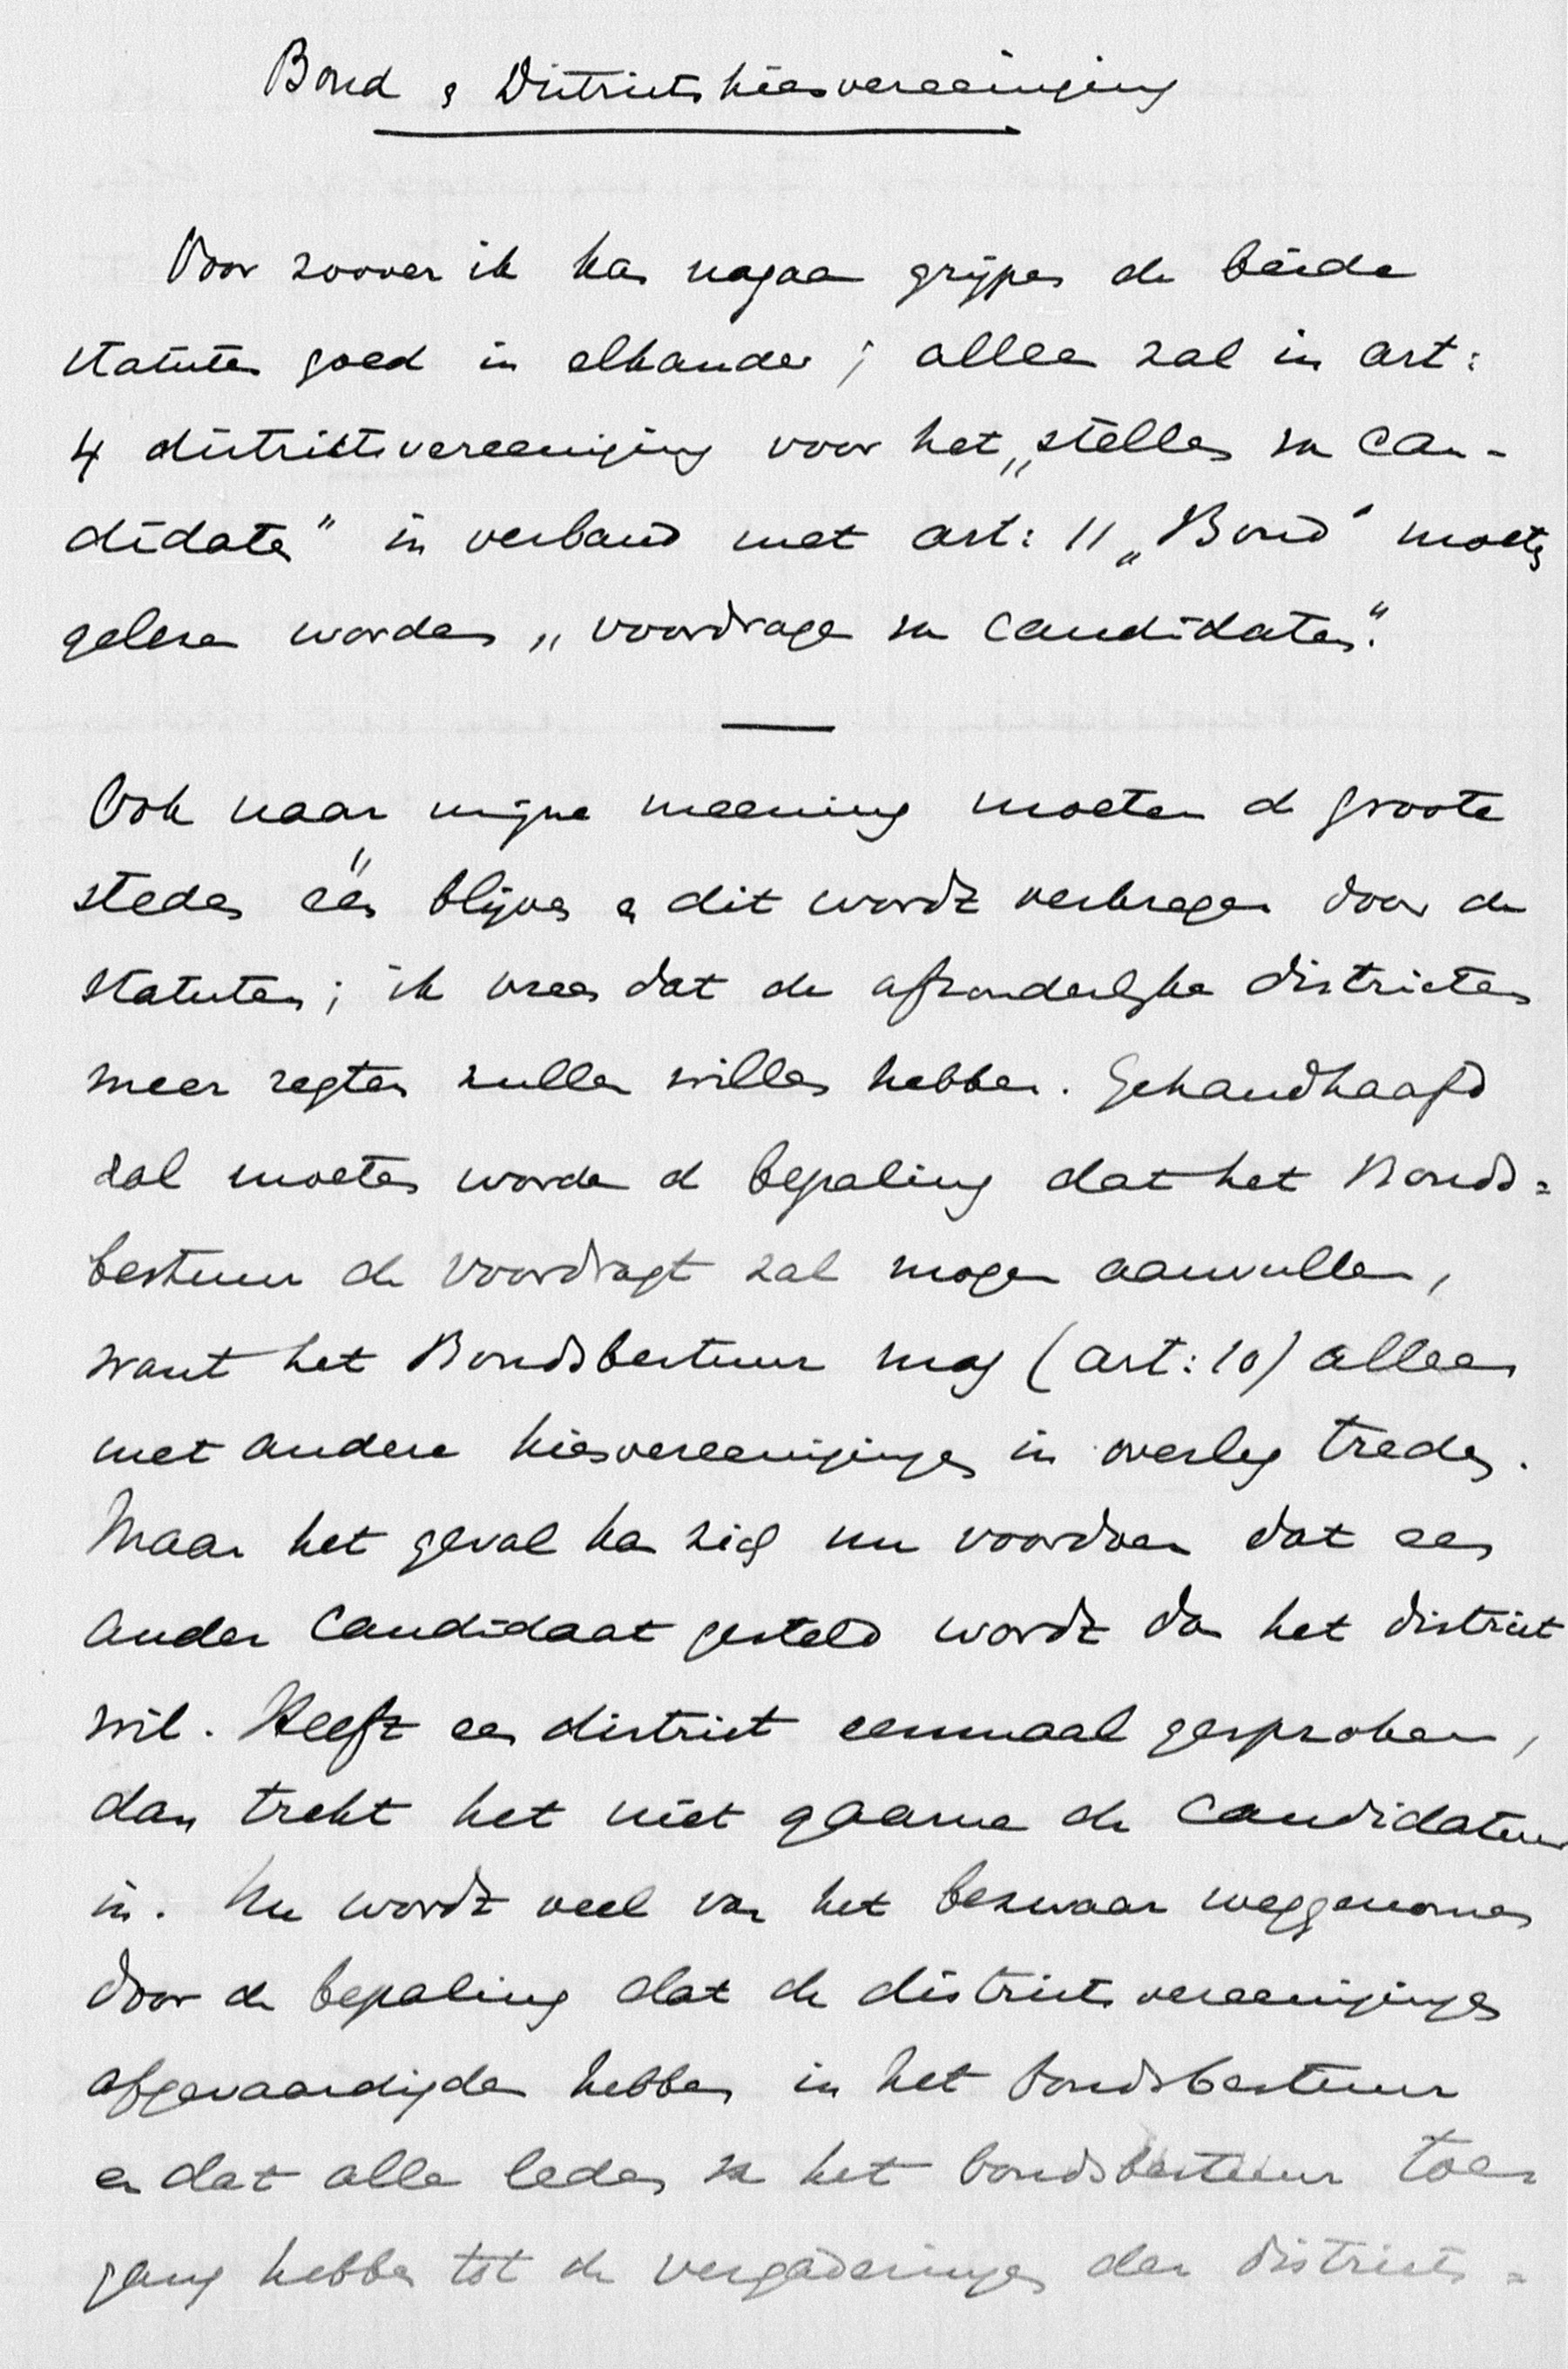 Bond & Districtskiesvereeniging
Voor zoover ik kan nagaan grijpen de beide
statuten goed in elkander; alleen zal in art:
4 districtsvereeniging voor het „stellen van can-
didaten” in verband met art: 11 „Bond” moeten
gelezen worden „voordragen van candidaten”.
Ook naar mijne meening moeten de groote
steden één blijven en dit wordt verkregen door de
statuten; ik vrees dat de afzonderlijke districten
meer regten zullen willen hebben. Gehandhaafd
zal moeten worden de bepaling dat het Bonds=
bestuur de voordragt zal mogen aanvullen,
want het Bondsbestuur mag (art: 10) alleen
met andere kiesvereenigingen in overleg treden.
Maar het geval kan zich nu voordoen dat een
ander candidaat gesteld wordt dan het district
wil. Heeft een district eenmaal gesproken,
dan trekt het niet gaarne de candidatuur
in. Nu wordt veel van het bezwaar weggenomen
door de bepaling dat de districtsvereenigingen
afgevaardigden hebben in het bondsbestuur
en dat alle leden van het bondsbestuur toe
gang hebben tot de vergaderingen der districts=